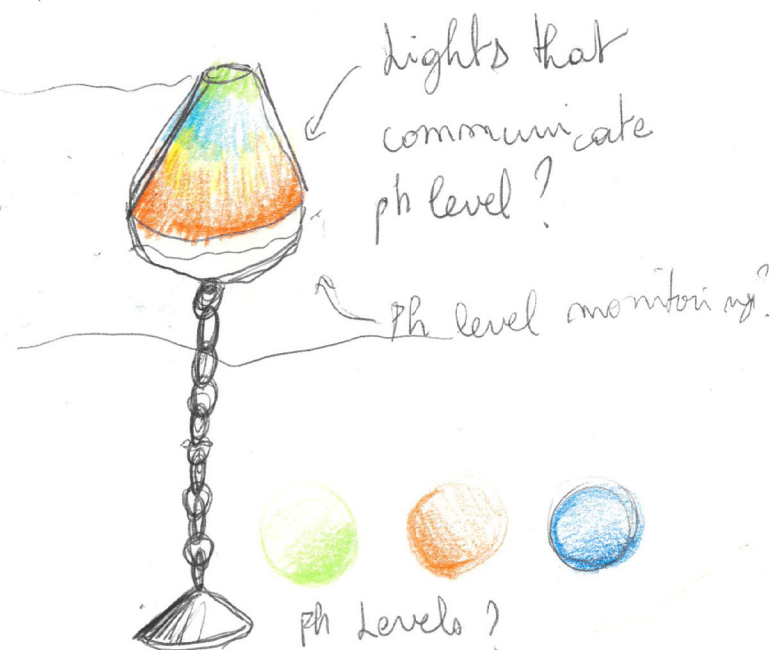 Lights that
communicate
ph level?
Ph level monitoring?
ph Levels?